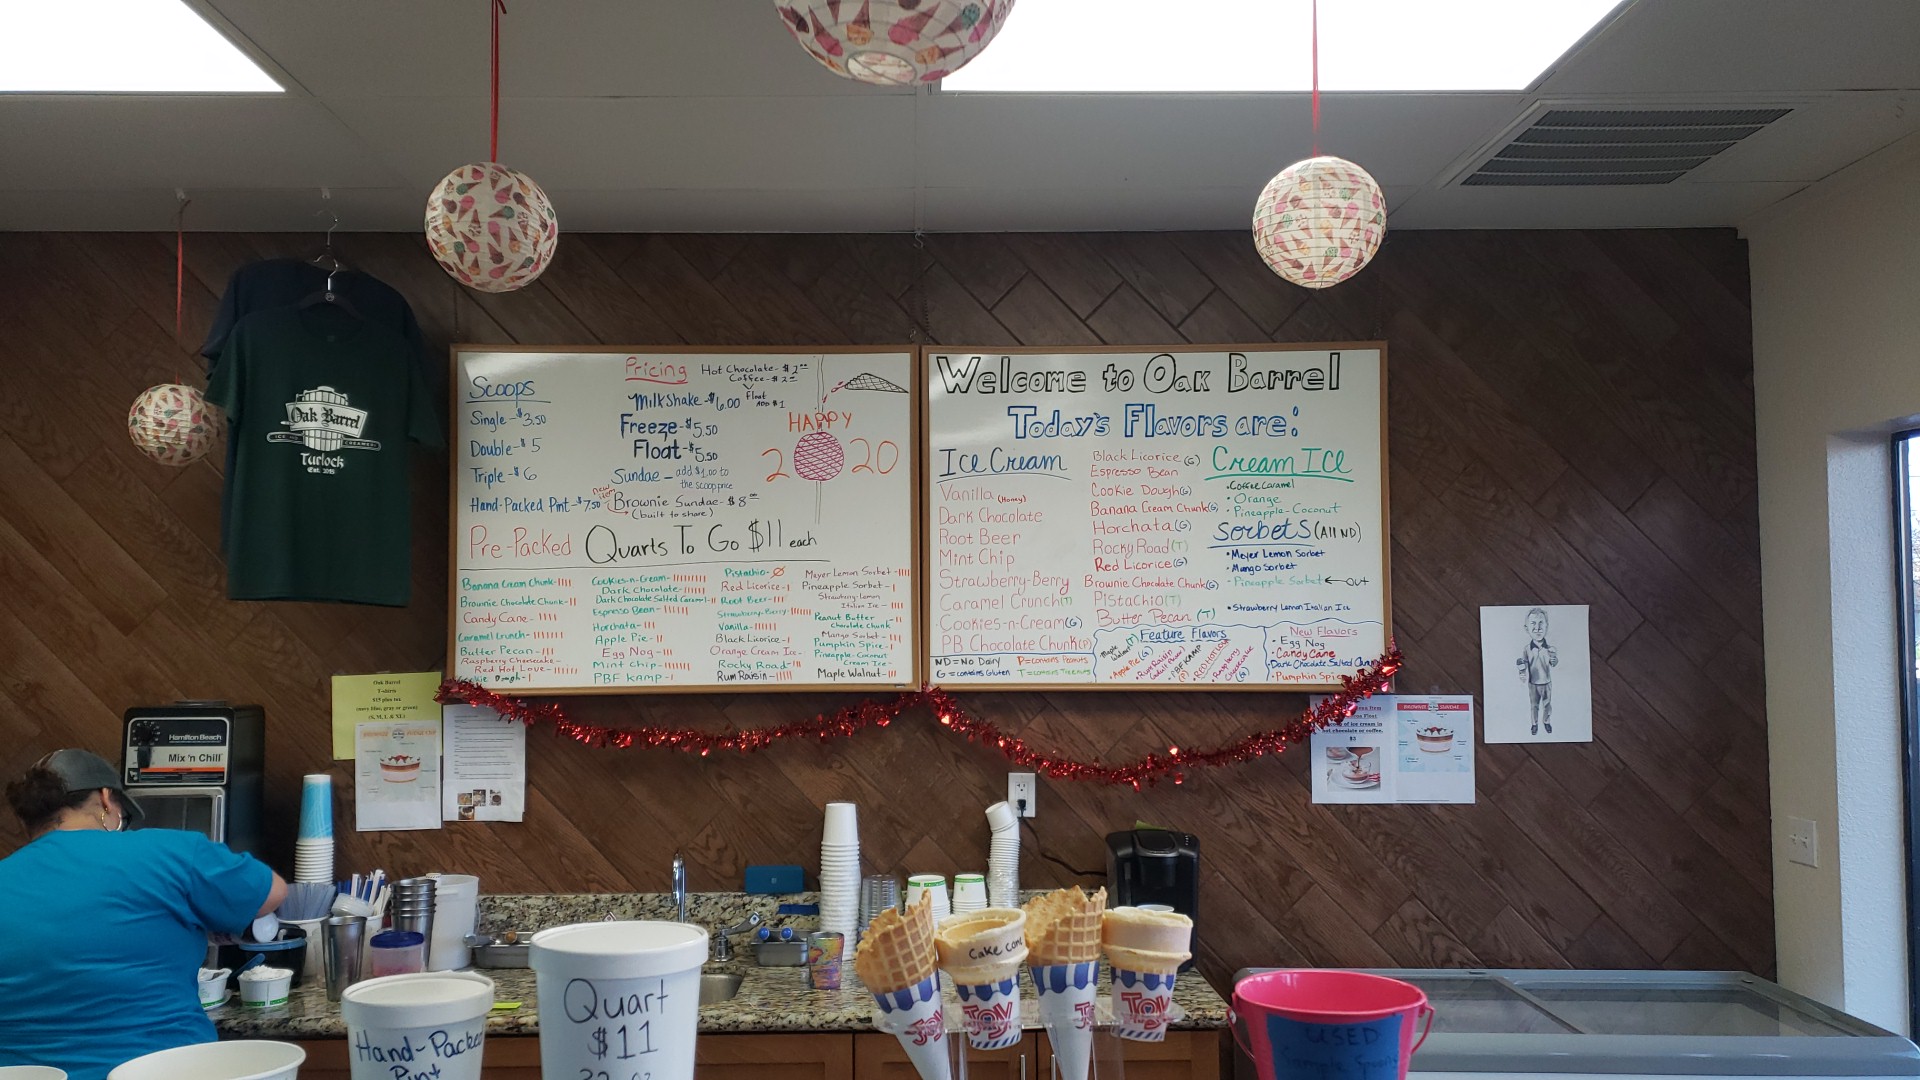 Pricing
Hot Chocolate-$2⁰⁰
Coffee-$2
Float
ADD $1
Scoops
Single-$3.50
Double-$5
Triple-$6
Hand-Packed Pint-$7.50
MilkShake-$6.00
Freeze-$5.50
Float-$5.50
Sundae - add $1.00 to
the scoop price
new item
Brownie Sundae-$8⁰⁰
(built to share)
HAPPY
2 020
Pre-Packed Quarts To Go $11 each
Banana Cream Chunk-||||
Brownie Chocolate Chunk-||
Candy Cane-||||
Caramel Crunch-|||||||
Butter Pecan-|||
Raspberry Cheesecake-
Red Hot Love-
Dough-|
Cookies-n-Cream-
Dark Chocolate-
Dark Chocolate Salted Caramel-||
Espresso Bean-||||||
Horchata-|||
Apple Pie-||
Egg Nog-|||
Mint Chip-||||||
PBF KAMP-|
Pistachio-
Red Licorice-|
Root Beer-|||
Strawberry-Berry-
Vanilla-||||||
Black Licorice-|
Orange Cream Ice-
Rocky Road-|||
Rum Raisin-|||||
Meyer Lemon Sorbet-||||
Pineapple Sorbet-|
Strawberry-Lemon
Italian Ice-||||
Peanut Butter
Chocolate Chunk
Mango Sorbet-|||
Pumpkin Spice-|
Pineapple-Coconut
Cream Ice-
Maple Walnut-|||
Welcome to Oak Barrel
Today's Flavors are:
Ice Cream
Vanilla (Honey)
Dark Chocolate
Root Beer
Mint Chip
Strawberry-Berry
Caramel Crunch(T)
Cookies-n-Cream(G)
PB Chocolate Chunk(P)
ND=No Dairy P=contains Peanuts
G=contains Gluten T=contains Treenuts
Black Licorice(G)
Espresso Bean
Cookie Dough(G)
Banana Cream Chunk(G)
Horchata(G)
Rocky Road(T)
Red Licorice(G)
Brownie Chocolate Chunk(G)
Pistachio(T)
Butter Pecan(T)
Cream ICE
•Coffee Caramel
•Orange
•Pineapple-Coconut
Sorbets (All ND)
•Meyer Lemon Sorbet
•Mango Sorbet
•Pineapple Sorbet ← OUT
•Strawberry Lemon Italian Ice
Feature Flavors
Maple Walnut(T)
•Apple Pie(G)
•Rum Raisin
•PBF KAMP (P)
•RED HOT LOVE
•Raspberry Cheesecake (G)
New Flavors
•Egg Nog
•Candy Cane
•Dark Chocolate Salted Caramel
•Pumpkin Spice
Oak Barrel
ICE CREAMERY
Turlock
Est. 2015
Oak Barrel
T-shirts
$15 plus tax
(navy blue, gray or green)
(S, M, L & XL)
BROWNIE SUNDAE
Item
Float
of ice cream in
hot chocolate or coffee.
$3
BROWNIE SUNDAE
Hamilton Beach
Mix 'n Chill
Cake cone
JOY
JOY
JOY
JOY
Hand-Packed
Pint
Quart
$11
32 oz
USED
Sample Spoons